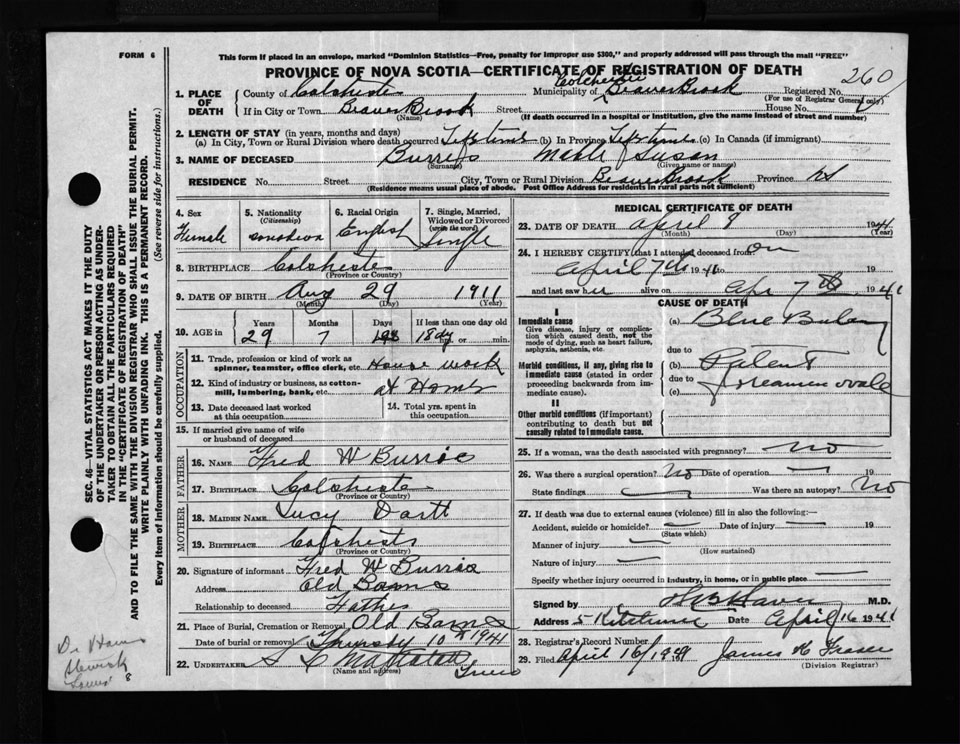 FORM 6
This form if placed in an envelope, marked "Dominion Statistics—Free, penalty for improper use $300," and properly addressed will pass through the mail "FREE"
PROVINCE OF NOVA SCOTIA—CERTIFICATE OF REGISTRATION OF DEATH
260
1. PLACE OF DEATH
County of Colcheste Municipality of Colchester Beaver Brook Registered No.
(For use of Registrar General only)
If in City or Town Beaver Brook Street House No.
(Name) (If death occurred in a hospital or institution, give the name instead of street and number)
2. LENGTH OF STAY (in years, months and days)
(a) In City, Town or Rural Division where death occurred Lifetime (b) In Province Lifetime (c) In Canada (if immigrant)
3. NAME OF DECEASED Burris Mable Susan
(Surname) (Given name or names)
RESIDENCE No. Street City, Town or Rural Division Beaver Brook Province NS
(Residence means usual place of abode. Post Office Address for residents in rural parts not sufficient)
4. Sex Female
5. Nationality (Citizenship)
6. Racial Origin English
7. Single, Married, Widowed or Divorced (write the word) Single
8. BIRTHPLACE Colcheste
(Province or Country)
9. DATE OF BIRTH Aug 29 1911
(Month) (Day) (Year)
10. AGE in Years Months Days If less than one day old
29 7 18 dy hrs. or min.
OCCUPATION
11. Trade, profession or kind of work as spinner, teamster, office clerk, etc. House work
12. Kind of industry or business, as cotton-mill, lumbering, bank, etc. at Home
13. Date deceased last worked at this occupation
14. Total yrs. spent in this occupation
15. If married give name of wife or husband of deceased
FATHER
16. NAME Fred W Burris
17. BIRTHPLACE Colcheste
(Province or Country)
MOTHER
18. MAIDEN NAME Lucy Dartt
19. BIRTHPLACE Colcheste
(Province or Country)
20. Signature of informant Fred W Burris
Address Old Barns
Relationship to deceased Father
21. Place of Burial, Cremation or Removal Old Barns
Date of burial or removal Thursday 10th 1941
22. UNDERTAKER
(Name and address) Truro
MEDICAL CERTIFICATE OF DEATH
23. DATE OF DEATH April 8 1941
(Month) (Day) (Year)
24. I HEREBY CERTIFY that I attended deceased from on
April 7th 1941 19
and last saw her alive on Apr 7th 1941
CAUSE OF DEATH
I
Immediate cause
Give disease, injury or complication which caused death, not the mode of dying, such as heart failure, asphyxia, asthenia, etc.
(a) Blue Baby
due to
Morbid conditions, if any, giving rise to immediate cause (stated in order proceeding backwards from immediate cause).
(b) Patent
due to
(c) foramen ovale
II
Other morbid conditions (if important) contributing to death but not causally related to immediate cause.
25. If a woman, was the death associated with pregnancy? no
26. Was there a surgical operation? No Date of operation 19
State findings Was there an autopsy? No
27. If death was due to external causes (violence) fill in also the following:—
Accident, suicide or homicide? Date of injury 19
(State which)
Manner of injury
(How sustained)
Nature of injury
Specify whether injury occurred in industry, in home, or in public place
Signed by M.D.
Address Date April 16 1941
28. Registrar's Record Number
29. Filed April 16/1941 James K Fraser
(Division Registrar)
SEC. 46—VITAL STATISTICS ACT MAKES IT THE DUTY OF THE UNDERTAKER OR PERSON ACTING AS UNDERTAKER TO OBTAIN ALL THE PARTICULARS REQUIRED IN THE "CERTIFICATE OF REGISTRATION OF DEATH"
AND TO FILE THE SAME WITH THE DIVISION REGISTRAR WHO SHALL ISSUE THE BURIAL PERMIT.
WRITE PLAINLY WITH UNFADING INK. THIS IS A PERMANENT RECORD.
Every item of information should be carefully supplied. (See reverse side for instructions.)
8